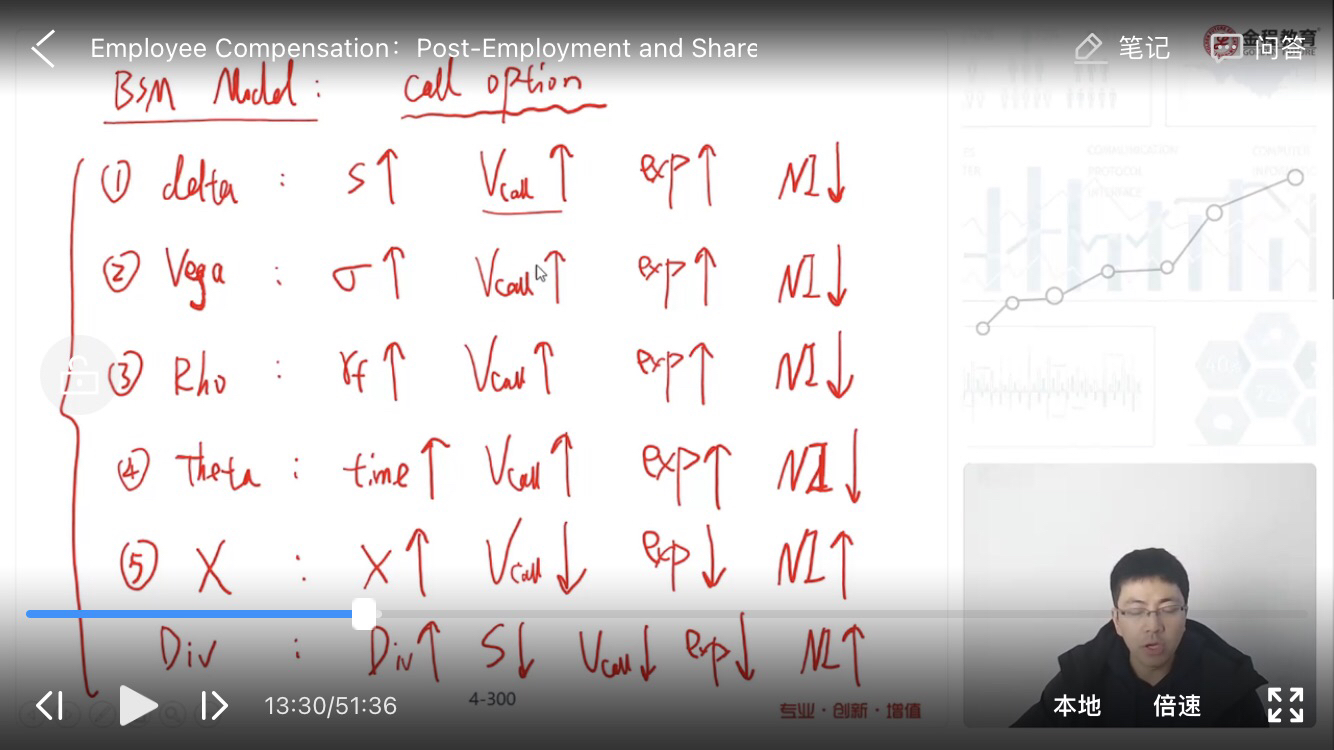 Employee Compensation：Post-Employment and Share
笔记
问答
金程教育
BSM Model : Call option
① delta : S↑ Vcall↑ exp↑ NI↓
② Vega : σ↑ Vcall↑ exp↑ NI↓
③ Rho : rf↑ Vcall↑ exp↑ NI↓
④ Theta : time↑ Vcall↑ exp↑ NI↓
⑤ X : X↑ Vcall↓ exp↓ NI↑
Div : Div↑ S↓ Vcall↓ exp↓ NI↑
COMMUNICATION
PROTOCOL
INTERFACE
COMPUTER
13:30/51:36
4-300
专业·创新·增值
本地
倍速